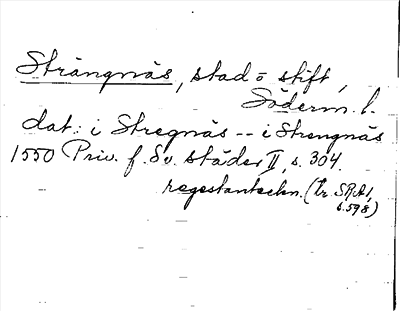 Strängnäs, stad o stift,
Söderm. l.
dat: i Stregnäs -- i Strengnäs
1550 Priv. f. Sv. städer II, s. 304.
regestanteckn. (tr. SRA 1,
s. 598)